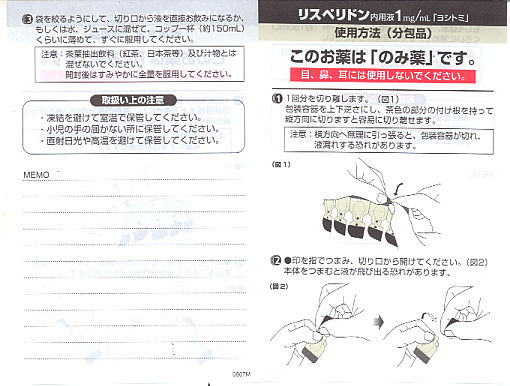 リスペリドン内用液1mg/mL「ヨシトミ」
使用方法（分包品）
このお薬は「のみ薬」です。
目、鼻、耳には使用しないでください。
1 1回分を切り離します。（図1）
包装容器を上下逆さにし、茶色の部分の付け根を持って
縦方向に切りますと容易に切り離せます。
注意：横方向へ無理に引っ張ると、包装容器が切れ、
液漏れする恐れがあります。
（図1）
2 ●印を指でつまみ、切り口から開けてください。（図2）
本体をつまむと液が飛び出る恐れがあります。
（図2）
3 袋を絞るようにして、切り口から液を直接お飲みになるか、
もしくは水、ジュースに混ぜて、コップ一杯（約150mL）
くらいに薄めて、すぐに服用してください。
注意：茶葉抽出飲料（紅茶、日本茶等）及び汁物とは
混ぜないでください。
開封後はすみやかに全量を服用してください。
取扱い上の注意
・凍結を避けて室温で保管してください。
・小児の手の届かない所に保管してください。
・直射日光や高温を避けて保管してください。
MEMO
0807M